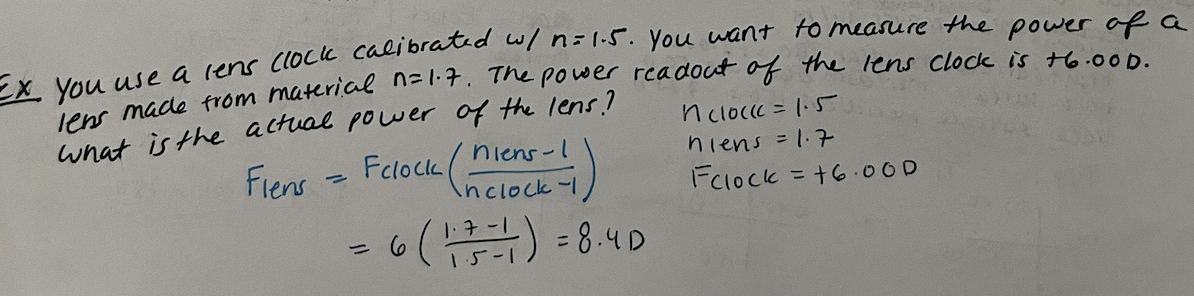 Ex You use a lens clock calibrated w/ n=1.5. You want to measure the power of a
lens made from material n=1.7. The power readout of the lens clock is +6.00D.
What is the actual power of the lens?
nclock = 1.5
nlens = 1.7
Fclock = +6.00D
Flens = Fclock (nlens-1 / nclock-1)
= 6 (1.7-1 / 1.5-1) = 8.4D